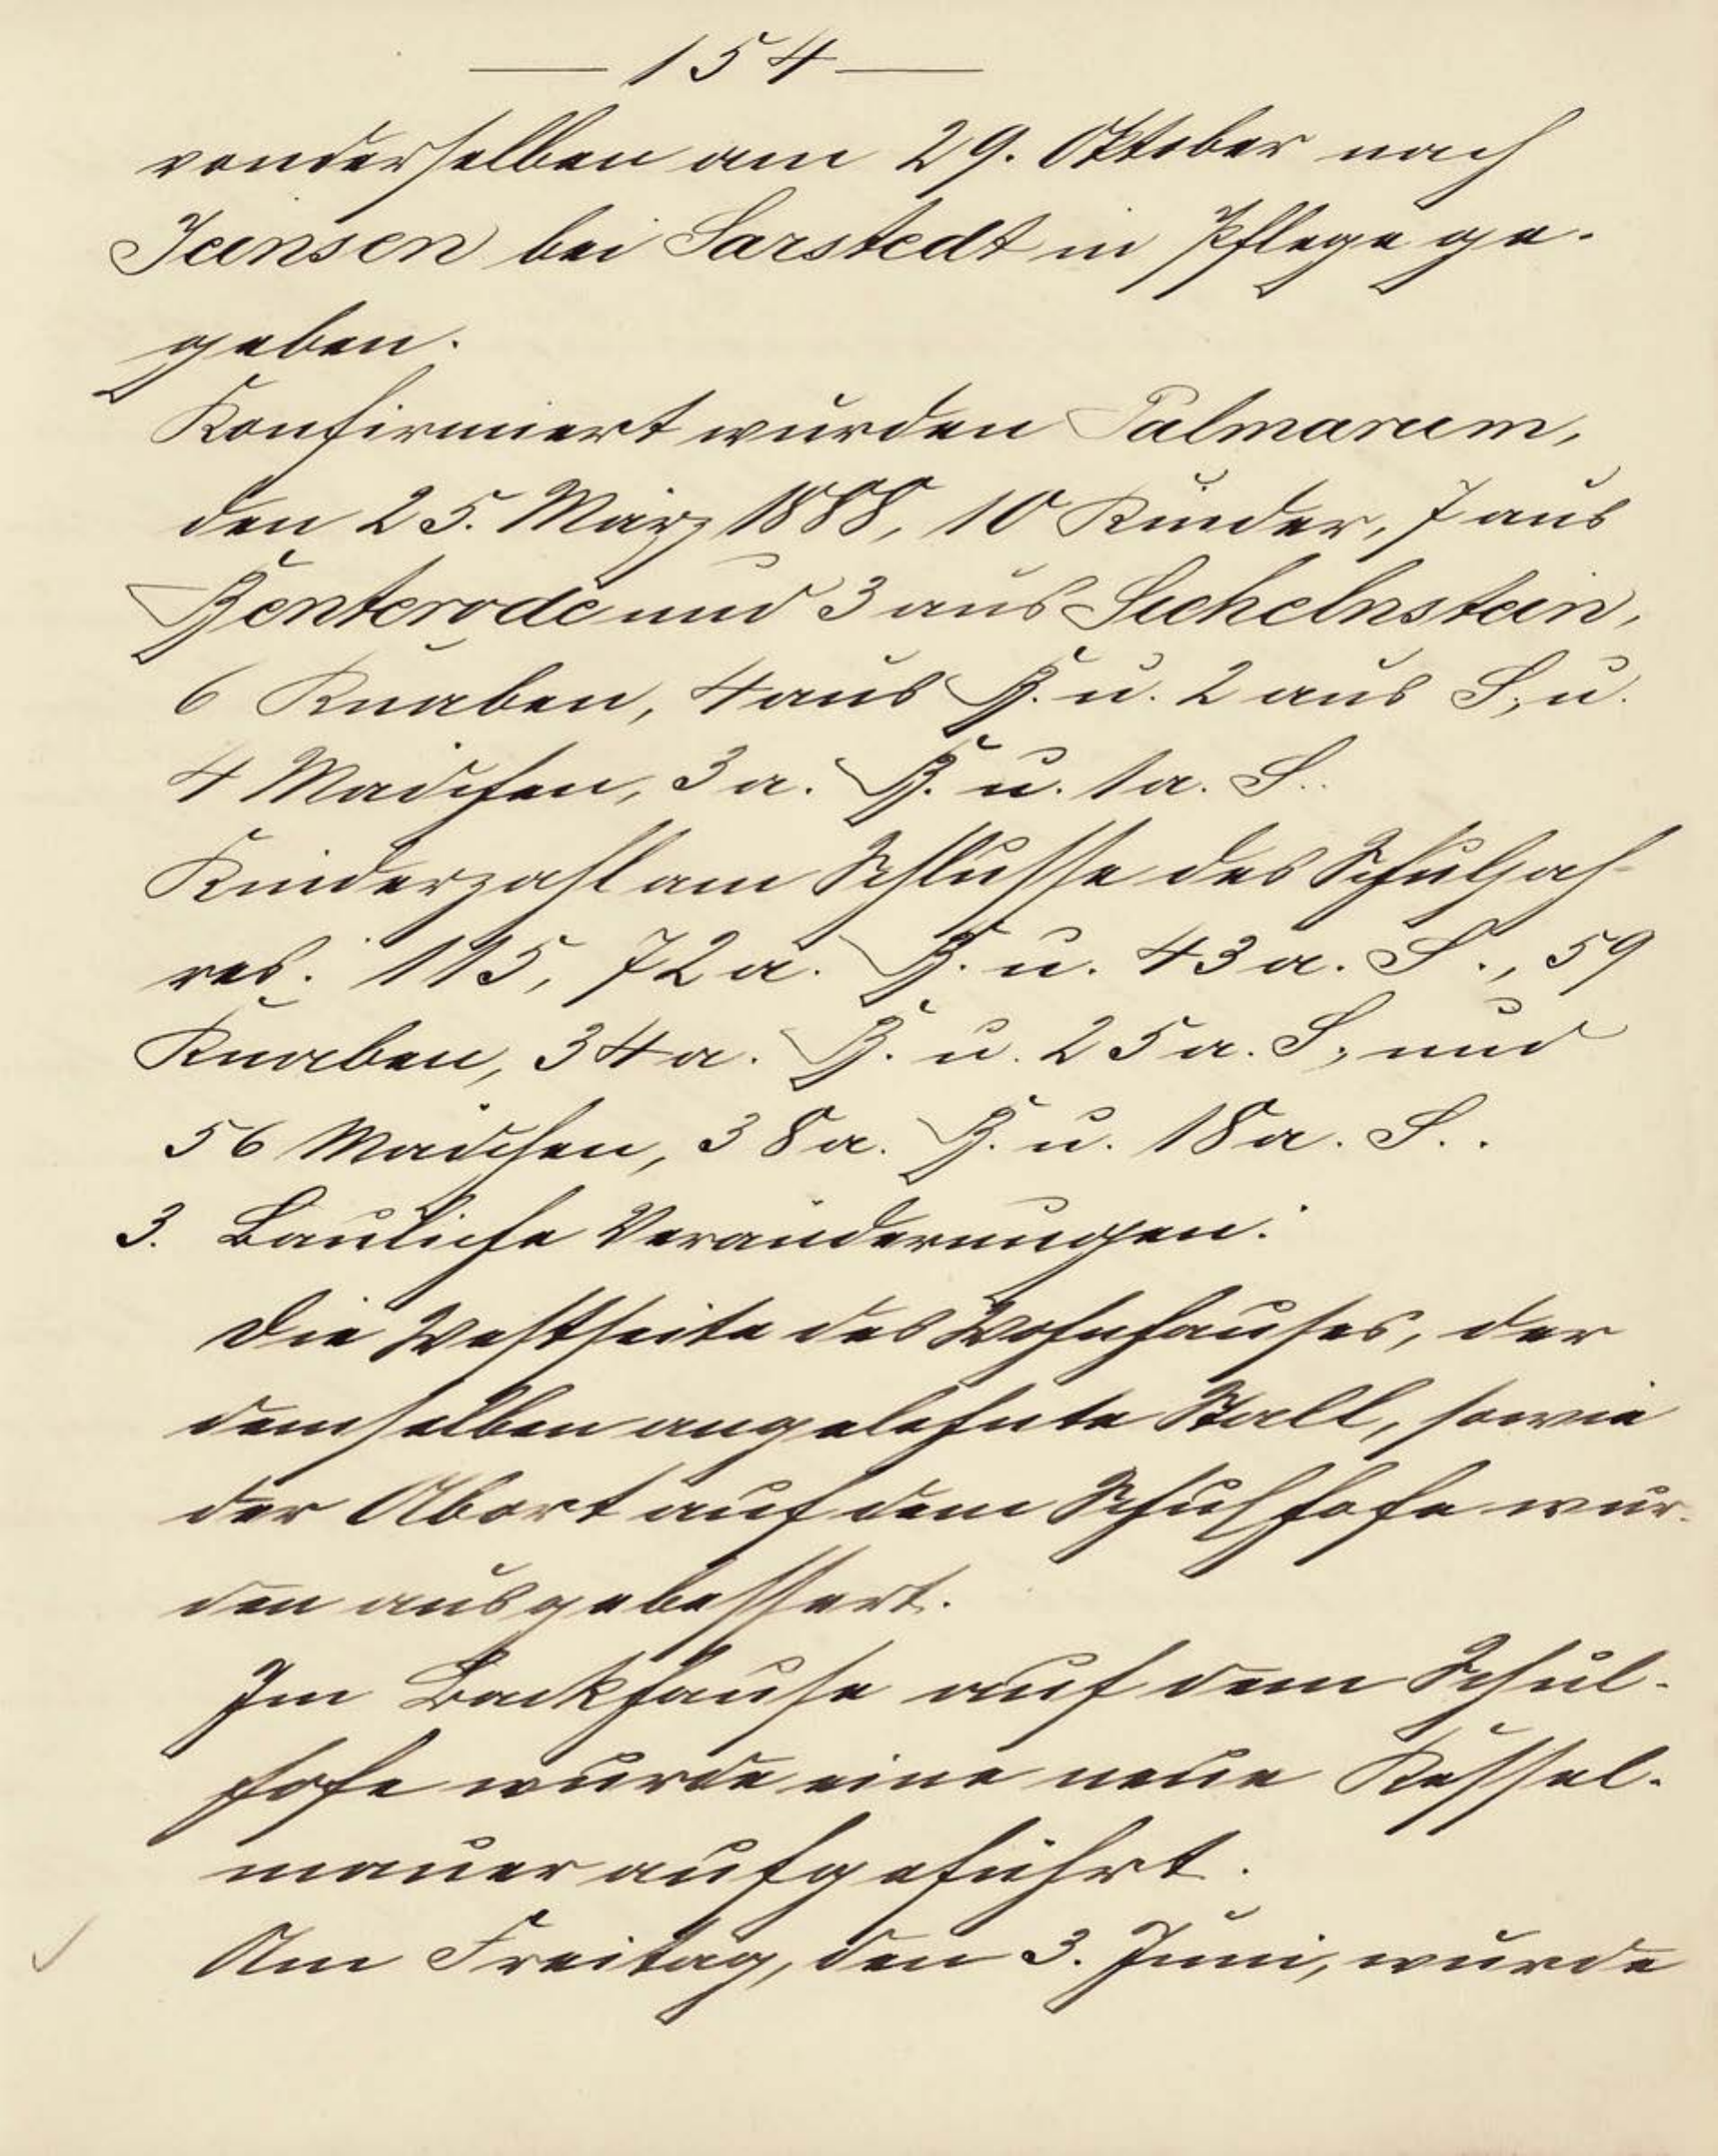 — 154 —
vonderselben am 29. Oktober nach
Jeinsen bei Sarstedt in Pflege ge-
geben.
Konfirmiert wurden Palmarum,
den 25. März 1888, 10 Kinder, 7 aus
Benterode und 3 aus Sichelnstein,
6 Knaben, 4 aus B. u. 2 aus S., u.
4 Mädchen, 3 a. B. u. 1 a. S..
Kinderzahl am Schlusse des Schuljah-
res: 115, 72 a. B. u. 43 a. S., 59
Knaben, 34 a. B. u. 25 a. S., und
56 Mädchen, 38 a. B. u. 18 a. S..
3. Bauliche Veränderungen:
Die Westseite des Wohnhauses, der
demselben angelehnte Stall, sowie
der Abort auf dem Schulhofe wur-
den ausgebessert.
Im Backhause auf dem Schul-
hofe wurde eine neue Kessel-
mauer aufgeführt.
Am Freitag, den 3. Juni, wurde